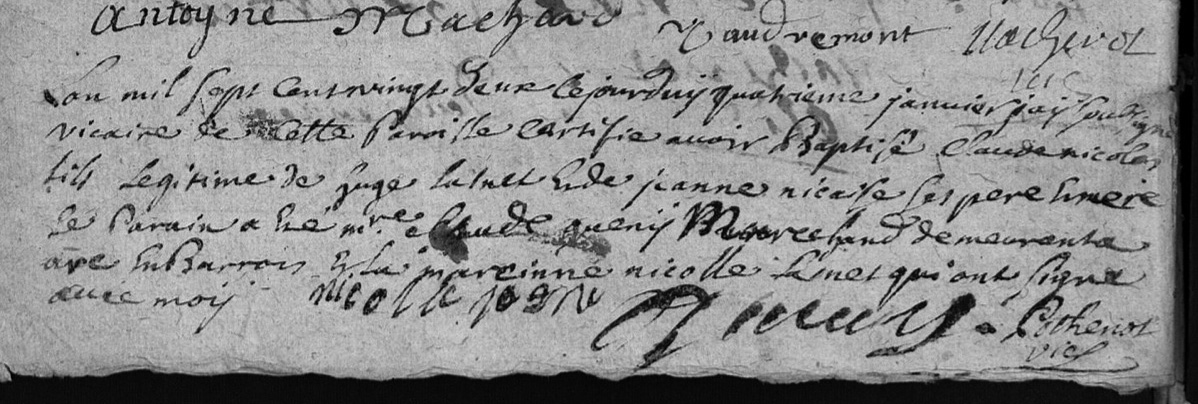 Antoyne Machard Vaudremont Vacherot
vic
L'an mil sept cent vingt deux le jourduy quatrieme janvier jay soubsigné
vicaire de cette Paroisse certifie avoir Baptisé Claude nicolas
fils Legitime de huge et de jeanne nicaise ses pere et mere
le Parain a eté mre Claude queny Marchand demeurent a
arc En Barrois et la mareinne nicolle qui ont signe
avec moij nicolle Pothenot
vic